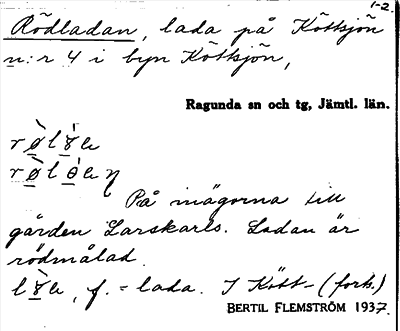 1-2.
Rödladan, lada på Köttsjön
n:r 4 i byn Köttsjön,
Ragunda sn och tg, Jämtl. län.
På mägorna till
gården Larskarls. Ladan är
rödmålad.
f. = lada. I Kött- (forts.)
BERTIL FLEMSTRÖM 1937.